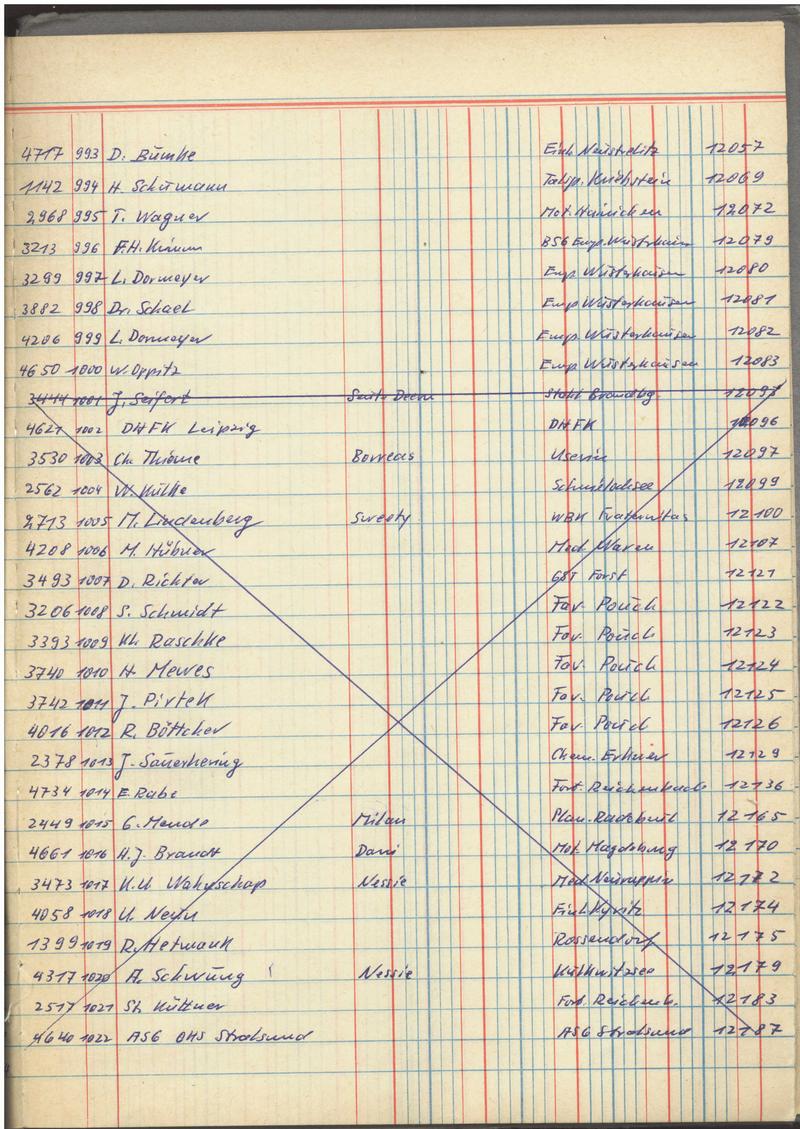 4717 993 D. Bumke Einh. Neustrelitz 12057
1142 994 H. Schumann Talsp. Kriebstein 12069
2968 995 T. Wagner Mot. Hainichen 12072
3213 996 F.H. BSG Emp. Wusterhausen 12079
3299 997 L. Dormeyer Emp Wüsterhausen 12080
3882 998 Dr. Schael Emp Wüsterhausen 12081
4206 999 L. Dormeyer Emp. Wüsterhausen 12082
4650 1000 W. Oppitz Emp Wüsterhausen 12083
3444 1001 J. Seifert Stahl Brandbg. 12093
4621 1002 DHFK Leipzig DHFK 12096
3530 1003 Ch. Thieme Borreas Userin 12097
2562 1004 W. Külke 12099
2713 1005 M. Lindenberg Sweety WBK 12100
4208 1006 M. Hübner Med. Waren 12107
3493 1007 D. Richter GST Forst 12121
3206 1008 S. Schmidt Fav. Pouch 12122
3393 1009 Kh. Raschke Fav. Pouch 12123
3740 1010 H. Mewes Fav. Pouch 12124
3742 1011 J. Pirtek Fav. Pouch 12125
4016 1012 R. Böttcher Fav. Pouch 12126
2378 1013 J. Sauerhering Chem. Erkner 12129
4734 1014 E. Rabe Fort. Reichenbach 12136
2449 1015 G. Mende Milan Plan. Radebeul 12165
4661 1016 H.J. Brandt Dani Mot. Magdeburg 12170
3473 1017 K.U. Wahrschap Nessie Med Neuruppin 12172
4058 1018 U. Einh Kyritz 12174
1399 1019 R. Hetmank Rossendorf 12175
4317 1020 A. Schwung Nessie Kulkwitzsee 12179
2517 1021 St. Küttner Fort. Reichenb. 12183
4640 1022 ASG OHS Stralsund ASG Stralsund 12187